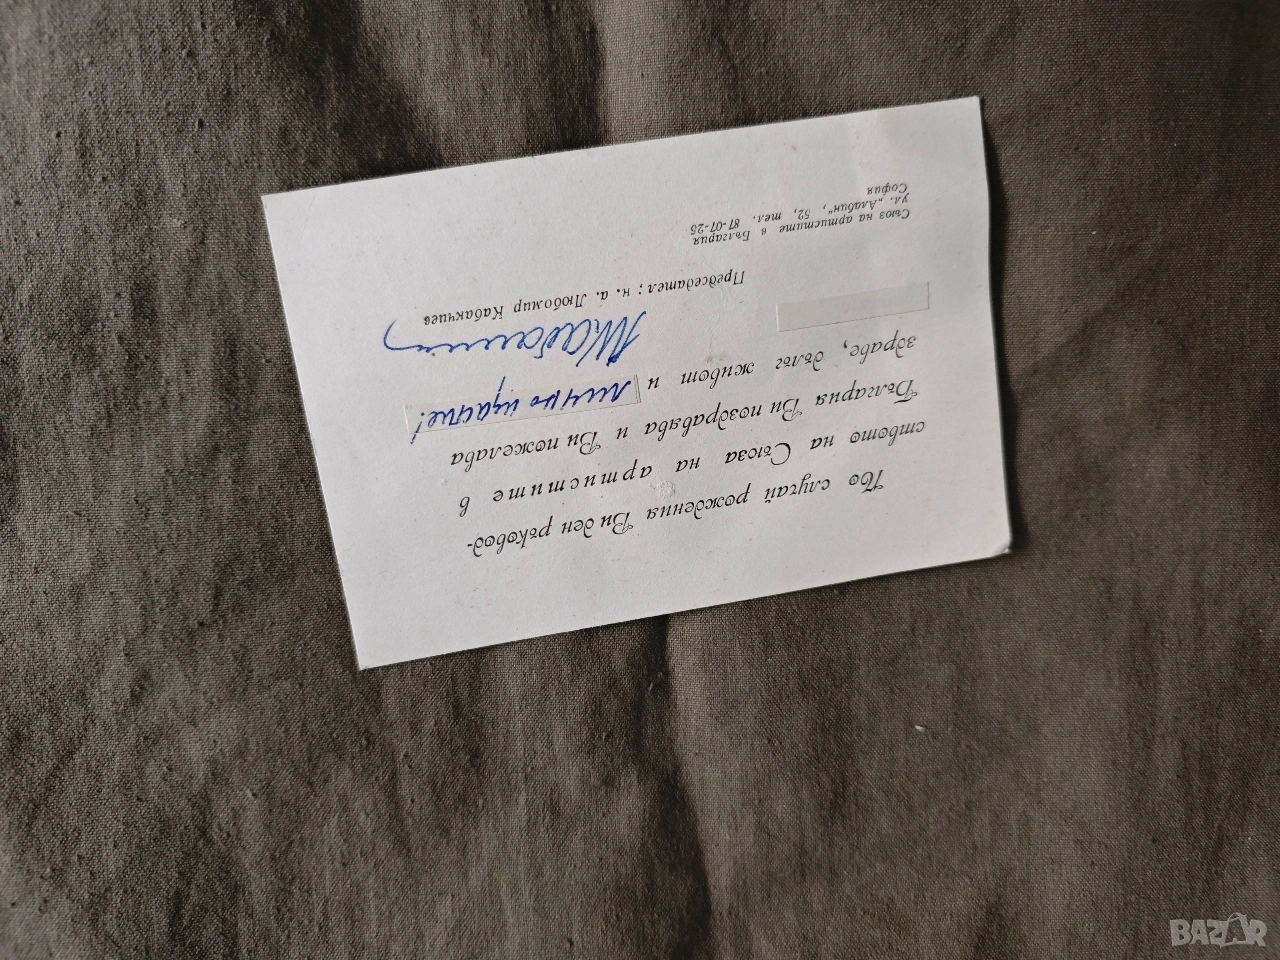 По случай рождения Ви ден ръковод-
ството на Съюза на артистите в
България Ви поздравява и Ви пожелава
здраве, дълъг живот и лично щастие!
Председател: н. а. Любомир Кабакчиев
Съюз на артистите в България
ул. „Алабин“, 52, тел. 87-07-25
София
BAZAR